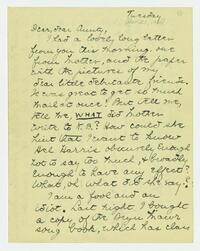 Tuesday
Dear, dear Aunty,
I had a lovely long letter
from you this morning, one
from Mother, and the paper
with the pictures of my
dear little debutante friends.
It was great to get so much
mail at once! But tell me,
tell me, WHAT did Mother
write to K.B.? How could she
hint that I want to know
Hel Harris obscurely enough
not to say too much, & broadly
enough to have any effect?
What, oh what did she say?
I am a fool and an
idiot. Last night I bought
a copy of the Bryn Mawr
song book, which has class